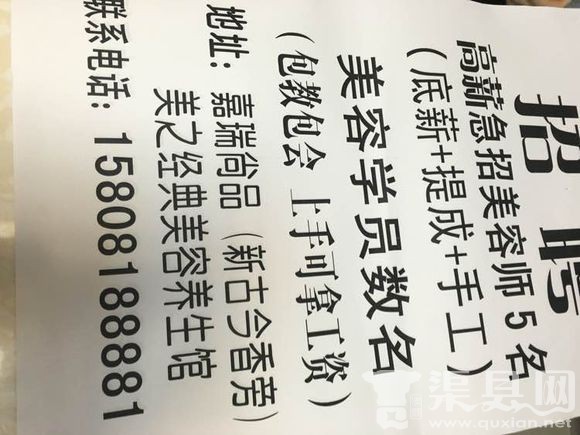 招聘
高薪急招美容师5名
（底薪+提成+手工）
美容学员数名
（包教包会 上手可拿工资）
地址：嘉瑞尚品（新古今香旁）
美之经典美容养生馆
联系电话：15808188881
渠县网
www.quxian.net